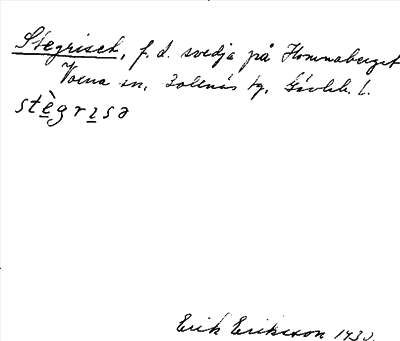 Stegrisch, f. d. svedja på Hommaberget
Voxna sn, Bollnäs tg, Gävleb. l.
stègrisə
Erik Eriksson 1930.